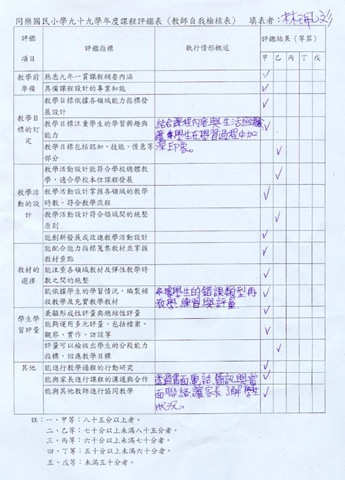 同樂國民小學九十九學年度課程評鑑表（教師自我檢核表）　填表者：林珮彣
評鑑項目　評鑑指標　執行情形概述　評鑑結果（等第）
甲　乙　丙　丁　戊
教學前準備
熟悉九年一貫課程綱要內涵　✓
具備課程設計的專業知能　✓
教學目標的訂定
教學目標依據各領域能力指標發展設計　✓
教學目標注重學生的學習興趣與能力　結合課程內容與生活經驗讓學生在學習過程中加深印象。　✓
教學目標包括認知、技能、情意等部分　✓
教學活動的設計
教學活動設計能符合學校總體教學，適合學校本位課程發展　✓
教學活動設計掌握各領域的教學時數，符合教學流程　✓
教學活動設計符合領域間的統整原則　✓
能創新發展或改進教學活動設計　✓
教材的選擇
能配合能力指標蒐集教材並掌握教材重點　✓
能注重各領域教材及彈性教學時數之間的統整　✓
能依據學生的學習情況，編製補救教學及充實教學教材　依據學生的錯誤類型再教學、練習與評量　✓
學生學習評量
兼顧形成性評量與總結性評量　✓
能夠運用多元評量，包括檔案、觀察、實作、訪談等　✓
評量可以檢核出學生的分段能力指標，因應教學目標　✓
其他
能進行教學過程的行動研究　✓
能與家長進行課程的溝通與合作　透過書面、電話、簡訊與當面聯絡，讓家長了解學習狀況。　✓
能與其他教師進行協同教學　✓
註：一、甲等：八十五分以上者。
二、乙等：七十分以上未滿八十五分者。
三、丙等：六十分以上未滿七十分者。
四、丁等：五十分以上未滿六十分者。
五、戊等：未滿五十分者。